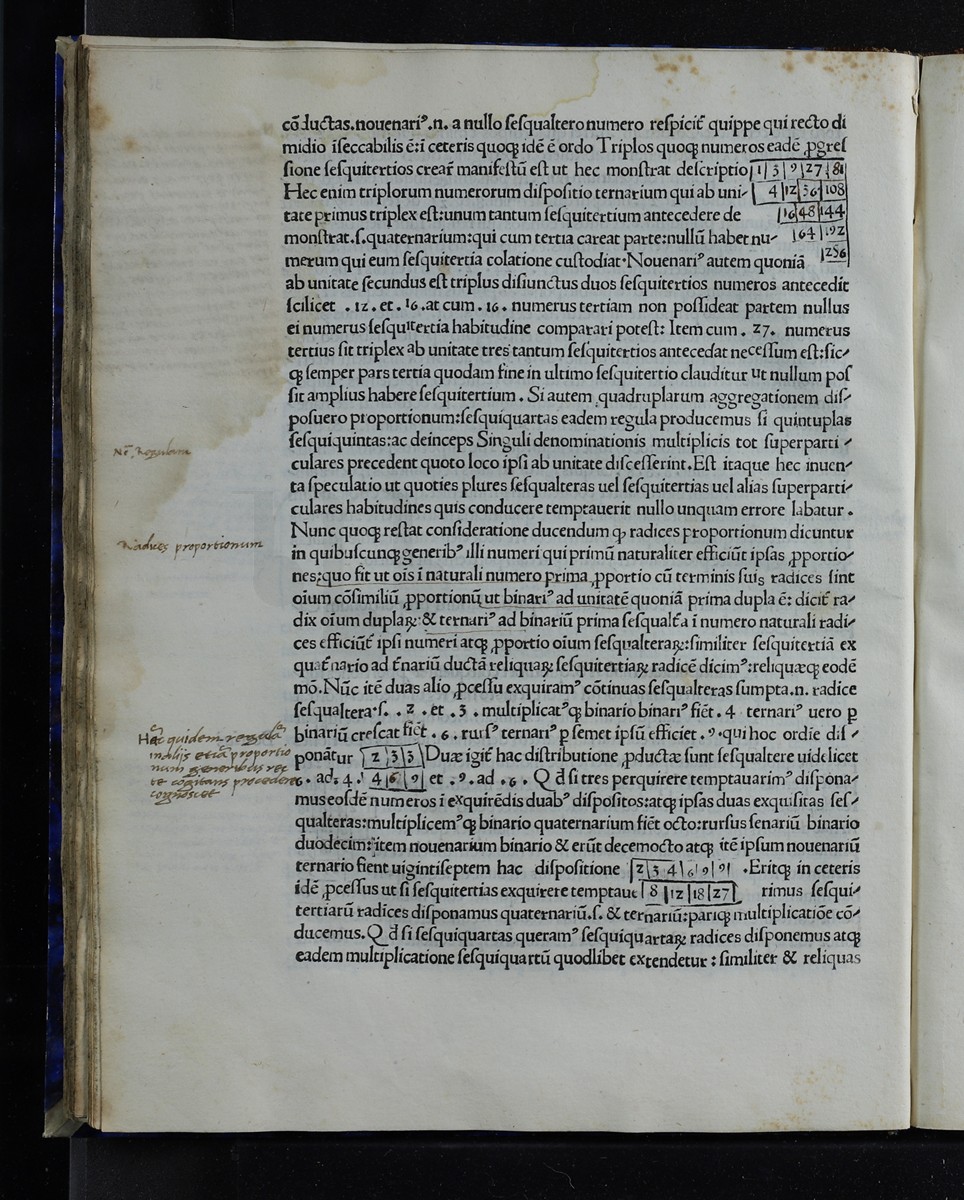 cōductas.nouenariꝰ.n. a nullo ſeſqualtero numero reſpicit᷑ quippe qui recto di
midio iſeccabilis ē:ī ceteris quoqꝫ idē ē ordo Triplos quoqꝫ numeros eadē ꝓgreſ
ſione ſeſquitertios crear᷑ manifeſtū eſt ut hec monſtrat deſcriptio 1 3 9 27 81
Hec enim triplorum numerorum diſpoſitio ternarium qui ab uni- 4 12 36 108
tate primus triplex eſt:unum tantum ſeſquitertium antecedere de 16 48 144
monſtrat.ſ.quaternarium:qui cum tertia careat parte:nullū habet nu- 64 192
merum qui eum ſeſquitertia colatione cuſtodiat·Nouenariꝰ autem quoniā 256
ab unitate ſecundus eſt triplus diſiunctus duos ſeſquitertios numeros antecedit
ſcilicet .12. et .16.at cum .16. numerus tertiam non poſſideat partem nullus
ei numerus ſeſquitertia habitudine comparari poteſt: Item cum .27. numerus
tertius ſit triplex ab unitate tres tantum ſeſquitertios antecedat neceſſum eſt:ſic-
qꝫ ſemper pars tertia quodam fine in ultimo ſeſquitertio clauditur ut nullum poſ
ſit amplius habere ſeſquitertium. Si autem quadruplarum aggregationem diſ-
poſuero proportionum:ſeſquiquartas eadem regula producemus ſi quintuplas
ſeſquiquintas:ac deinceps Singuli denominationis multiplicis tot ſuperparti-
Nō Regulam
culares precedent quoto loco ipſi ab unitate diſceſſerint.Eſt itaque hec inuen-
ta ſpeculatio ut quoties plures ſeſqualteras uel ſeſquitertias uel alias ſuperparti-
culares habitudines quis conducere temptauerit nullo unquam errore labatur.
Nunc quoqꝫ reſtat conſideratione ducendum ꝙ radices proportionum dicuntur
Radices proportionum
in quibuſcunqꝫ generibꝰ illi numeri qui primū naturaliter efficiūt ipſas ꝓportio-
nes:quo fit ut oīs ī naturali numero prima ꝓportio cū terminis ſuis radices ſint
oīum cōſimiliū ꝓportionū ut binariꝰ ad unitatē quoniā prima dupla ē: dicit᷑ ra-
dix oīum duplaꝝ:& ternariꝰ ad binariū prima ſeſqualt᷑a ī numero naturali radi-
ces efficiūt᷑ ipſi numeri atqꝫ ꝓportio oīum ſeſqualteraꝝ:ſimiliter ſeſquitertiā ex
quat᷑nario ad t᷑nariū ductā reliquaꝝ ſeſquitertiaꝝ radicē dicimꝰ:reliquæqꝫ eodē
mō.Nūc itē duas alio ꝓceſſu exquiramꝰ cōtinuas ſeſqualteras ſumpta.n. radice
ſeſqualtera·ſ. .2. et .3. multiplicatꝰqꝫ binario binariꝰ fiēt. 4 ternariꝰ uero ꝑ
binariū creſcat fiēt .6. rurſꝰ ternariꝰ ꝑ ſemet ipſū efficiet .9.qui hoc ordīe diſ-
ponātur 2 3 3 Duæ igit᷑ hac diſtributione ꝓductæ ſunt ſeſqualtere uidelicet
6. ad. 4. 4 6 9 et .9. ad .6. Qđ ſi tres perquirere temptauarimꝰ diſpona-
museoſdē numeros ī exquirēdis duabꝰ diſpoſitos:atqꝫ ipſas duas exquiſitas ſeſ-
qualteras:multiplicemꝰqꝫ binario quaternarium fiēt octo:rurſus ſenariū binario
duodecim:item nouenarium binario & erūt decemocto atqꝫ itē ipſum nouenariū
ternario fient uigintiſeptem hac diſpoſitione 2 3 4 6 9 9 .Eritqꝫ in ceteris
idē ꝓceſſus ut ſi ſeſquitertias exquirere temptaue 8 12 18 27 rimus ſeſqui-
tertiarū radices diſponamus quaternariū.ſ. & ternariū:pariqꝫ multiplicatiōe cō-
ducemus.Qđ ſi ſeſquiquartas queramꝰ ſeſquiquartaꝝ radices diſponemus atqꝫ
eadem multiplicatione ſeſquiquartū quodlibet extendetur : ſimiliter & reliquas
Hāc quidem regulā
etiā proportio
num generibus rec
te cōgitans procedere
cognoscet